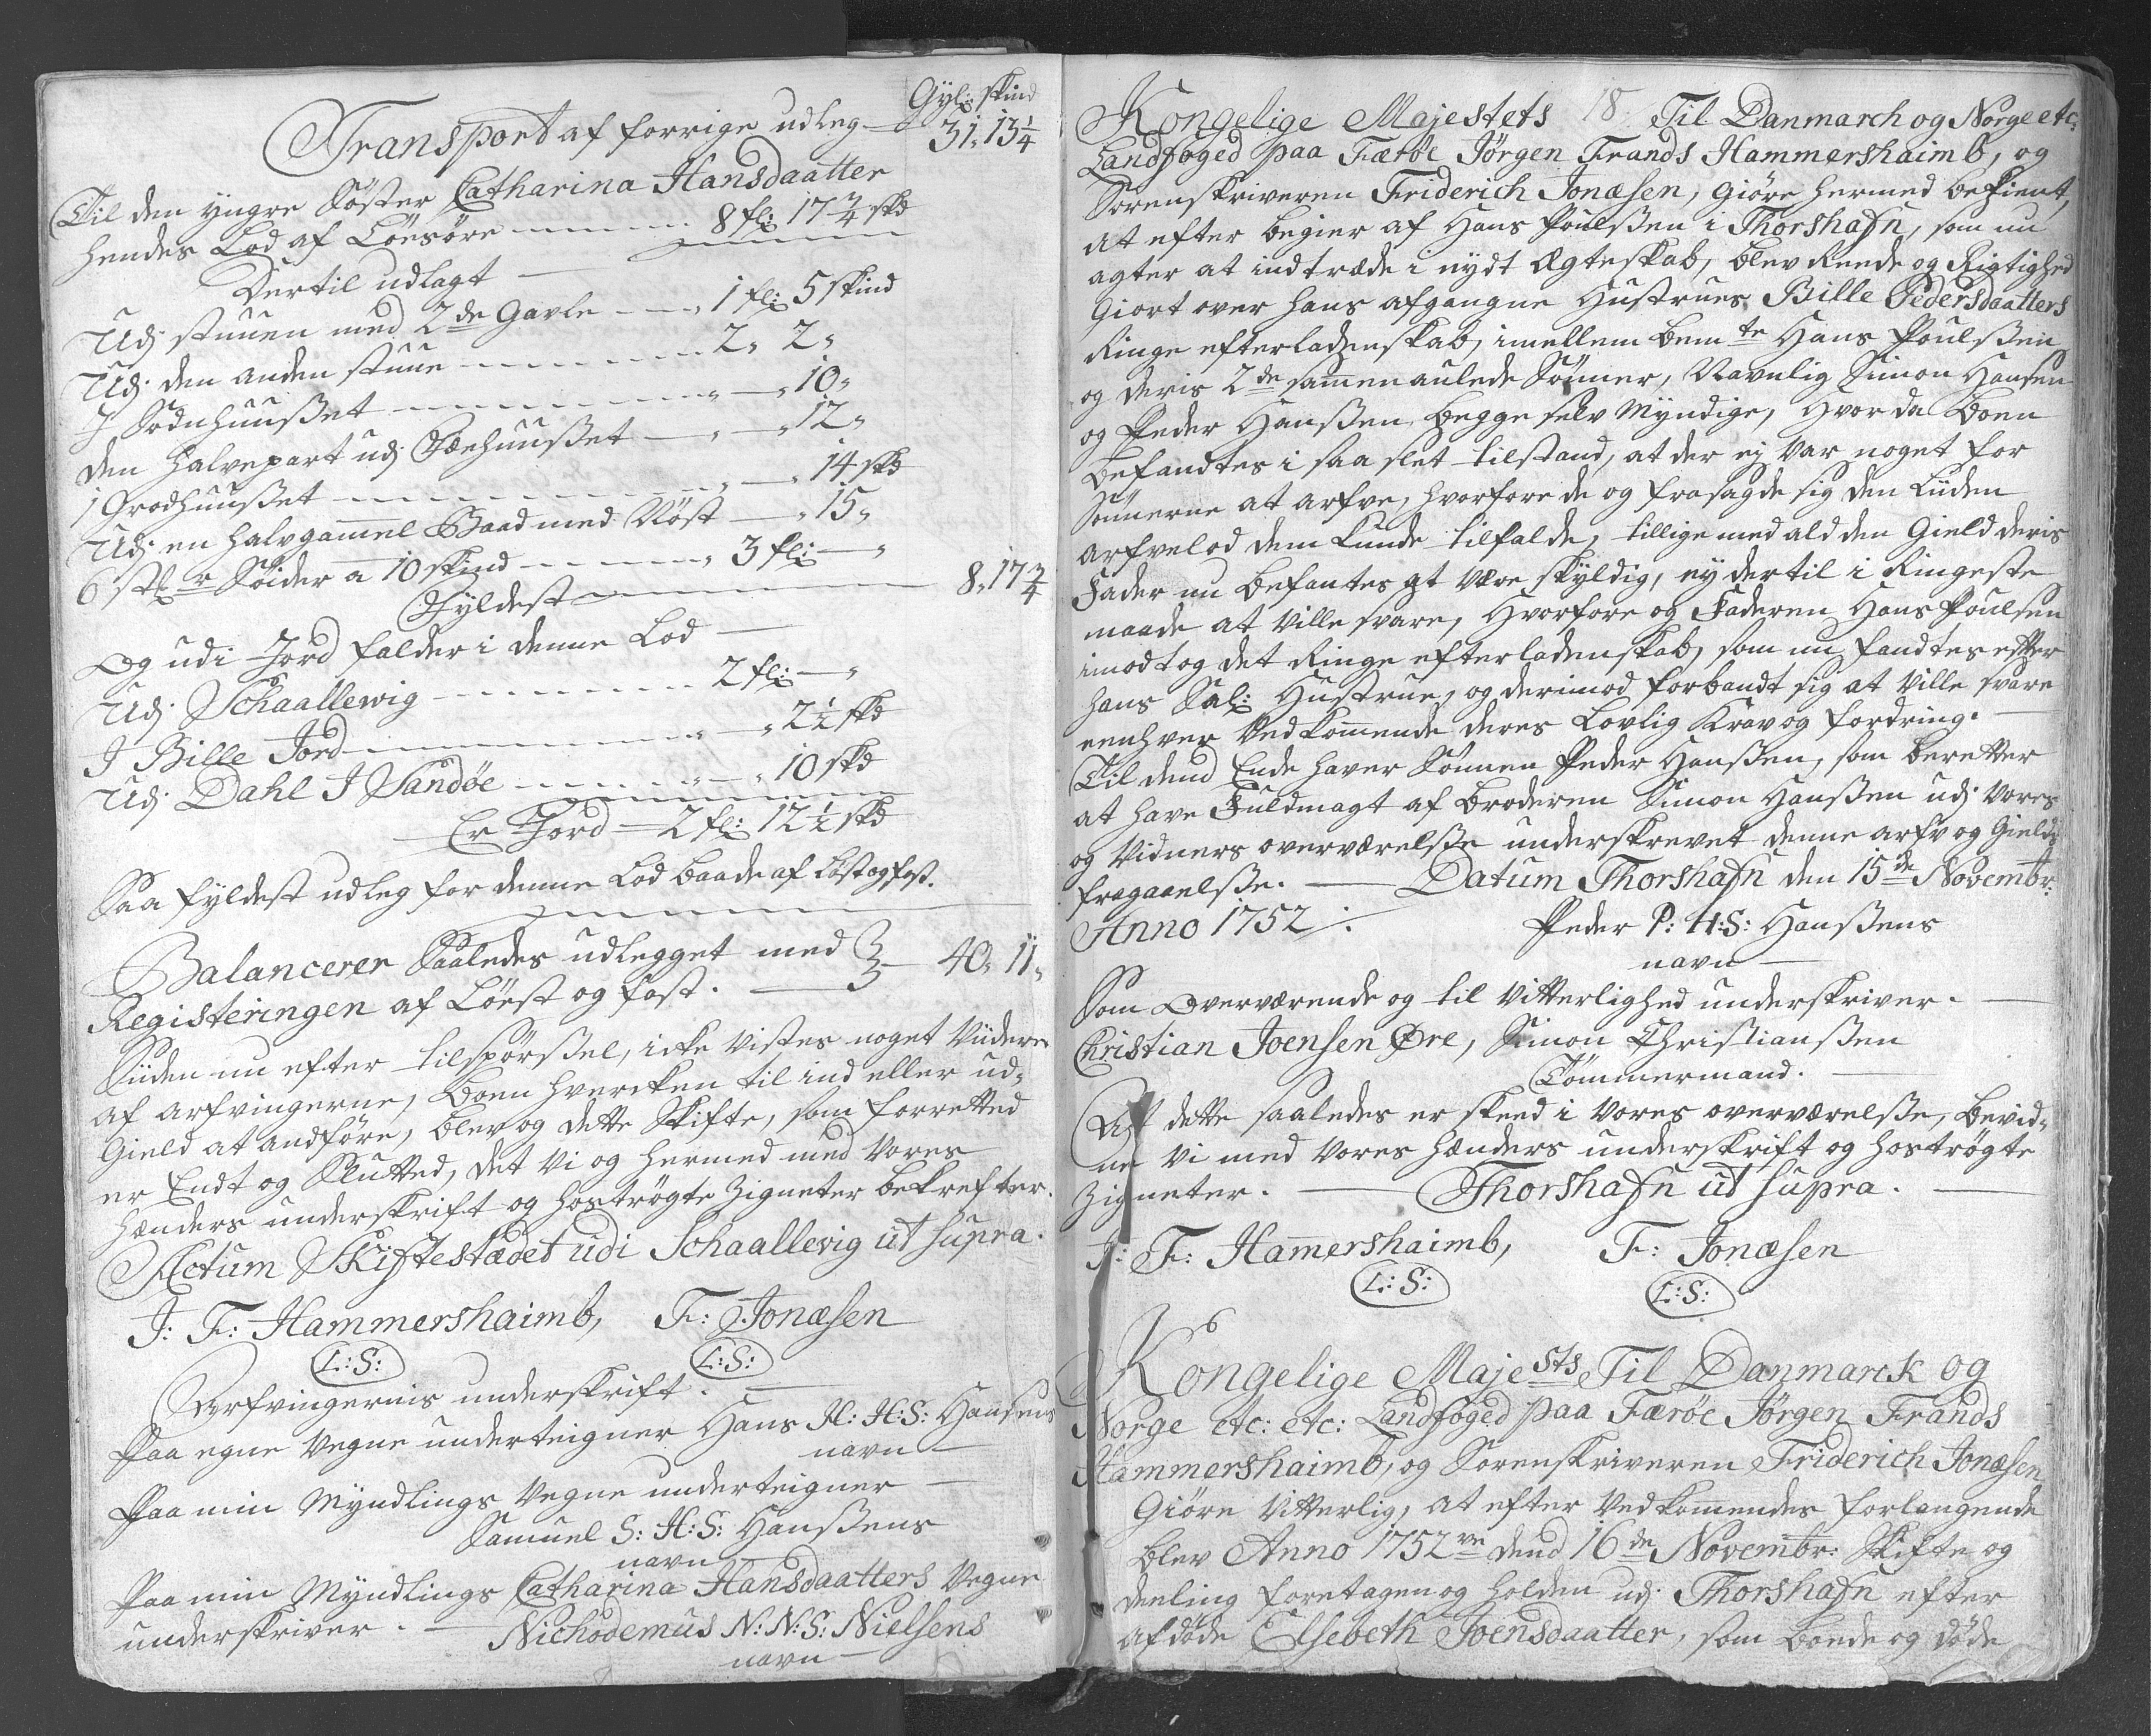 Gyl: skind
Transport af forrige udleg — 31„ 13 1/4
Til den yngre Söster Catharina Hansdaatter
hendes Lod af Löesöre — 8 fl: 17 3/4 skd
Dertil udlagt —
Udj stuuen med 2de Gavle — „ 1 fl: 5 skind
Udj den anden stuue — 2„ 2„
J Sodnhuußet — „ — „ 10„
den halvepart udj Fæhuußet — „ — „ 12„
1 Grodhuußet — „ — „ 14 skd
Udj en halvgammel Baad med Nöst — „ 15„
6 stk:r Söider a 10 skind — „ 3 fl: — „
Fyldest — 8„ 17 3/4
Og udi Jord falder i denne Lod —
Udj Schaallewig — 2 fl: — „
J Bille Jord — „ — „ 2 1/2 skd
Udj Dahl J Sandöe — „ — „ 10 skd
Er Jord — 2 fl: 12 1/2 skd
Saa fyldest udleg for denne Lod baade af Löst og fast.
Balancerer Saaledes udlegget med
Registeringen af Löest og fast. — 40„ 11„
Siiden nu efter tilspörßel, icke vistes noget Viidere
af arfvingerne, Boen hvercken til ind eller ud-
Gield at andföre, blev og dette Skifte, som forretted
er Endt og Sluttted, det Vi og hermed med Vores
hænders underskrift og hoströgte Zigneter bekrefter.
Actum Skiftestædet udi Schaallevig ut supra.
J: F: Hammershaimb, F: Jonæsen
L:S: L:S:
Arfvingernis underskrift. —
Paa egne Vegne underteigner Hans H: H:S: Hansens
navn —
Paa min Myndlings Vegne underteigner —
Samuel S: H:S: Hanßens
navn —
Paa min Myndlings Catharina Hansdaatters Vegne
underskriver. — Nichodemus N: N:S: Nielsens
navn —
18
Kongelige Majestets Til Danmarch og Norge etc:
Landfoged paa Færöe Jörgen Frands Hammershaimb, og
Sorenskriveren Friderich Jonæsen, Giöre hermed bekient,
at efter begier af Hans Poulßen i Thorshafn, som nu
agter at indtræde i nydt Ægteskab, blev Reede og Rigtighed
Giort over hans afgangne Hustrues Bille Pedersdaatters
Ringe efterladenskab, imellem bemte Hans Poulßen
og deris 2de sammen aulede Sönner, Navnlig Simon Hansen
og Peder Hanßen, begge selv Myndige, Hvor da Boen
befandtes i saa slet tilstand, at der ej var noget for
Sönnerne at arfve, hvorfore de og frasagde sig den Liiden
arfvelod dem kunde tilfalde, tillige med ald den Gield deris
Fader nu befantes at være skyldig, ey dertil i Ringeste
maade at ville svare, Hvorfore og Faderen Hans Poulsen
imodtog det Ringe efterladenskab, som nu fandtes efter
hans Sal: Hustrue, og derimod forbandt sig at ville svare
eenhver Vedkommende deres Lovlig Krav og fordring. —
Til dend Ende haver Sönnen Peder Hanßen, som beretter
at have Fuldmagt af broderen Simon Hanßen udj Vores
og Vidners overværelße underskrevet denne arfv og Gields
fragaaelße. — Datum Thorshafn den 15de Novembr:
Anno 1752 /: Peder P: H:S: Hanßens
navn —
Som Overværende og til vitterlighed underskriver. —
Christian Joensen Øre, Simon Christianßen
Tömmermand. —
At dette saaledes er skeed i Vores overværelße, bevid-
ne Vi med Vores hænders underskrift og hoströgte
Zigneter. — Thorshafn ut supra. —
J: F: Hamershaimb, F: Jonæsen
L:S: L:S:
Kongelige Majests Til Danmarck og
Norge etc: etc: Landfoged paa Færöe Jörgen Frands
Hammershaimb, og Sorenskriveren Friderich Jonæsen
Giöre Vitterlig, at efter Vedkommendes forlangende
blev Anno 1752ve dend 16de Novembr: Skifte og
deeling foretagen og holden udj Thorshafn efter
afdöde Elsebeth Joensdaatter, som boede og döde